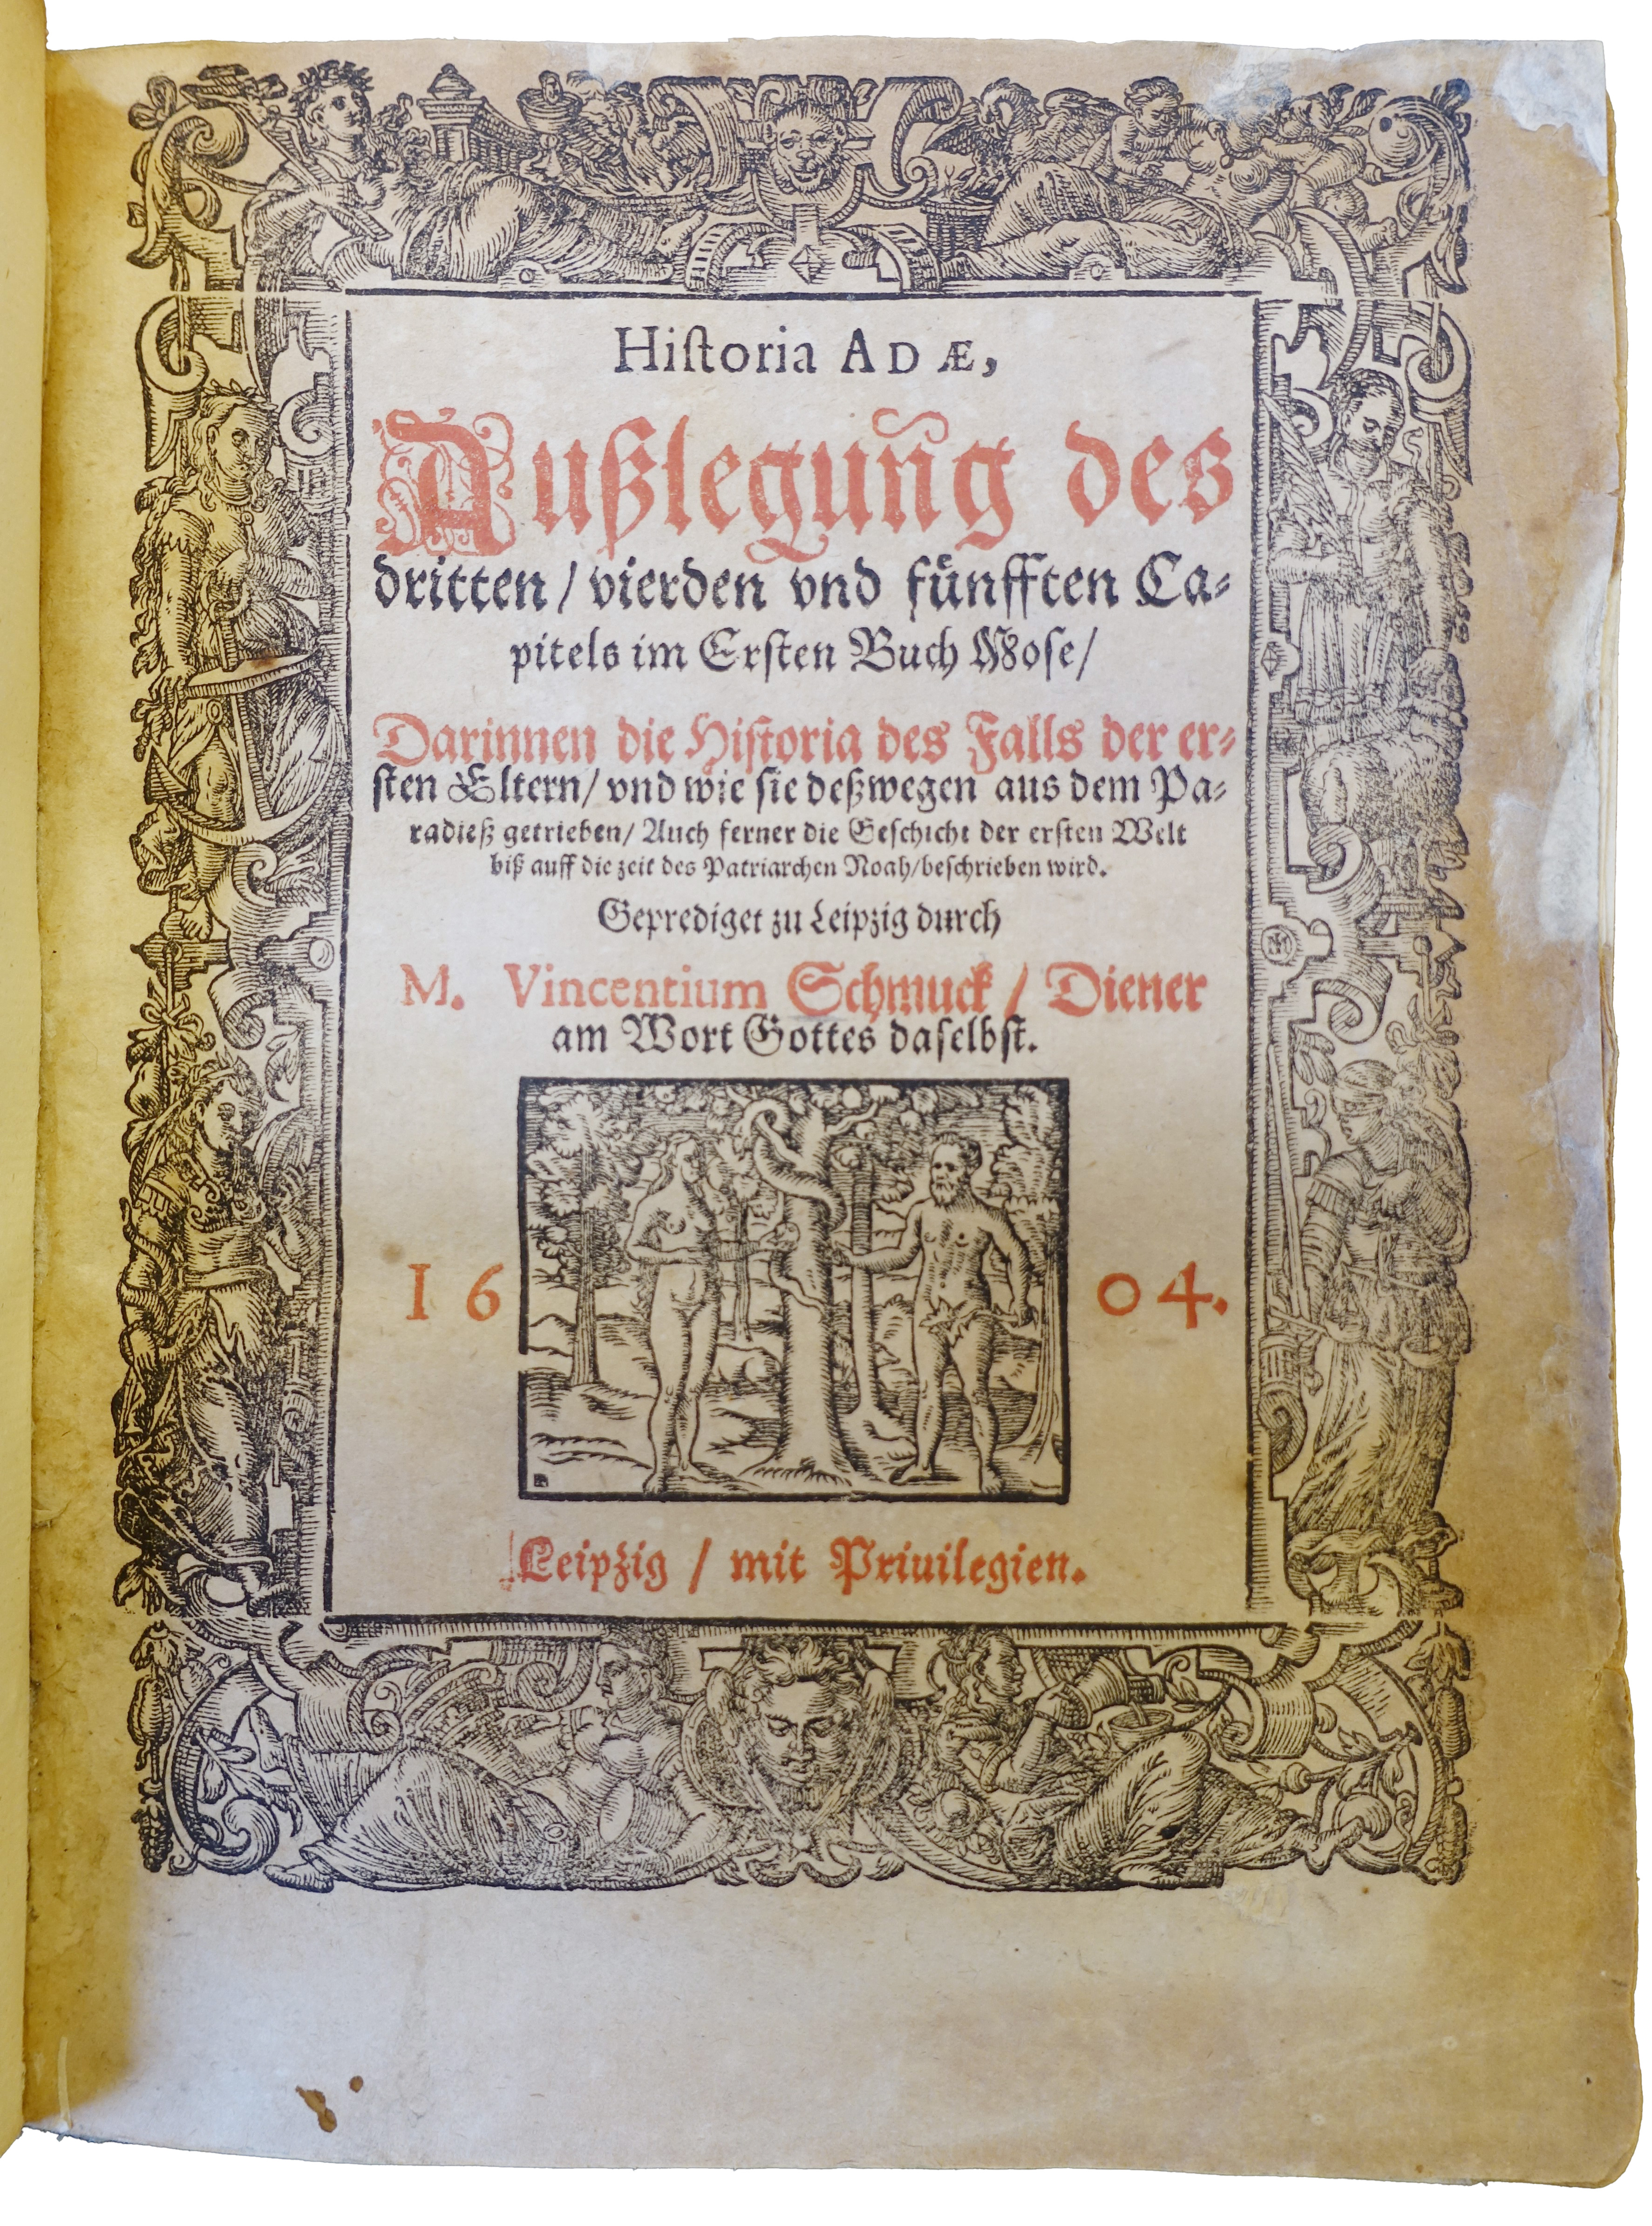 Hiſtoria ADÆ,
Außlegung des
dritten / vierden vnd fünfften Ca⸗
pitels im Erſten Buch Moſe/
Darinnen die Hiſtoria des Falls der er⸗
ſten Eltern/ vnd wie ſie deßwegen aus dem Pa⸗
radieß getrieben/ Auch ferner die Geſchicht der erſten Welt
biß auff die zeit des Patriarchen Noah/beſchrieben wird.
Geprediget zu Leipzig durch
M. Vincentium Schmuck / Diener
am Wort Gottes daſelbſt.
16 04.
Leipzig / mit Priuilegien.